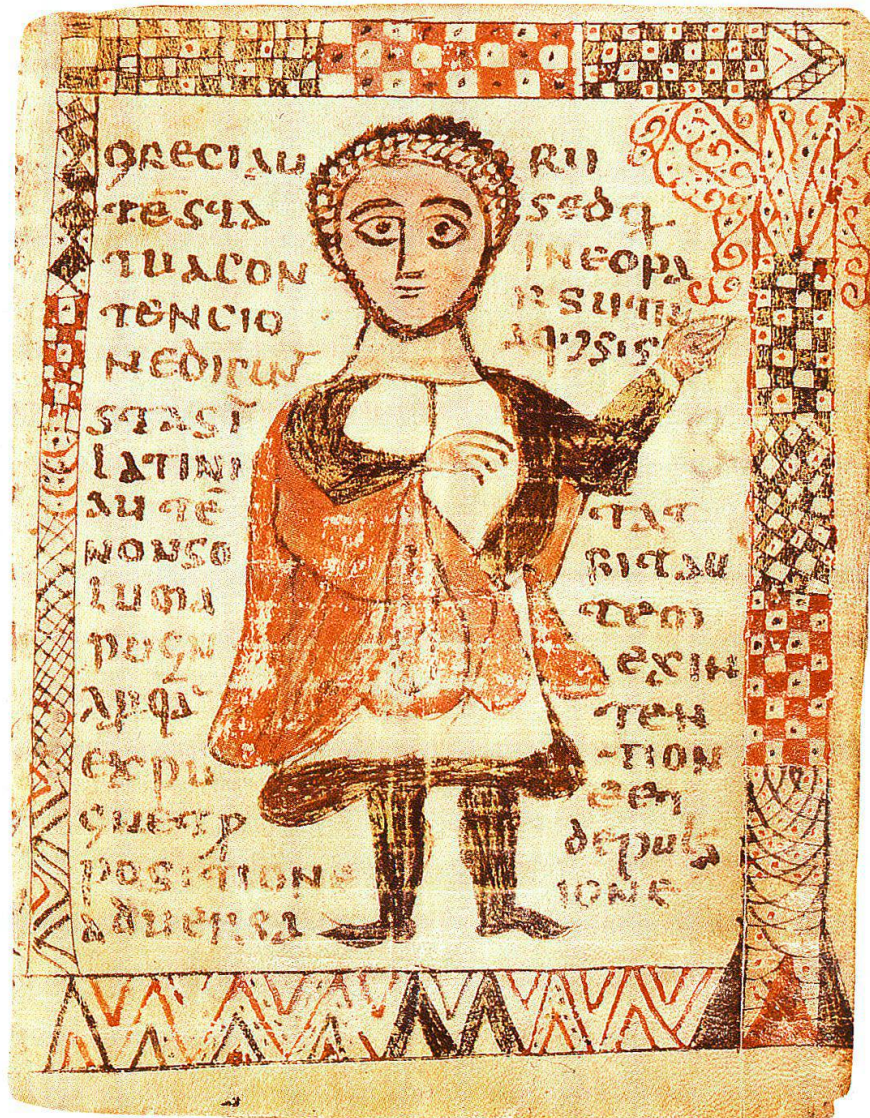 GRECIAU
TĒSTA
TUACON
TENCIO
NEDICUN̄
STASĪ
LATINI
AUTĒ
NONSO
LUMA
PUGN
EXPU
GNETP
POSITIONE
ADUERSA
RII
SEDQ
INEOPA
RSUTIU
TAT
TEM
EXIN
TEN
TION
EET
DEPULS
IONE